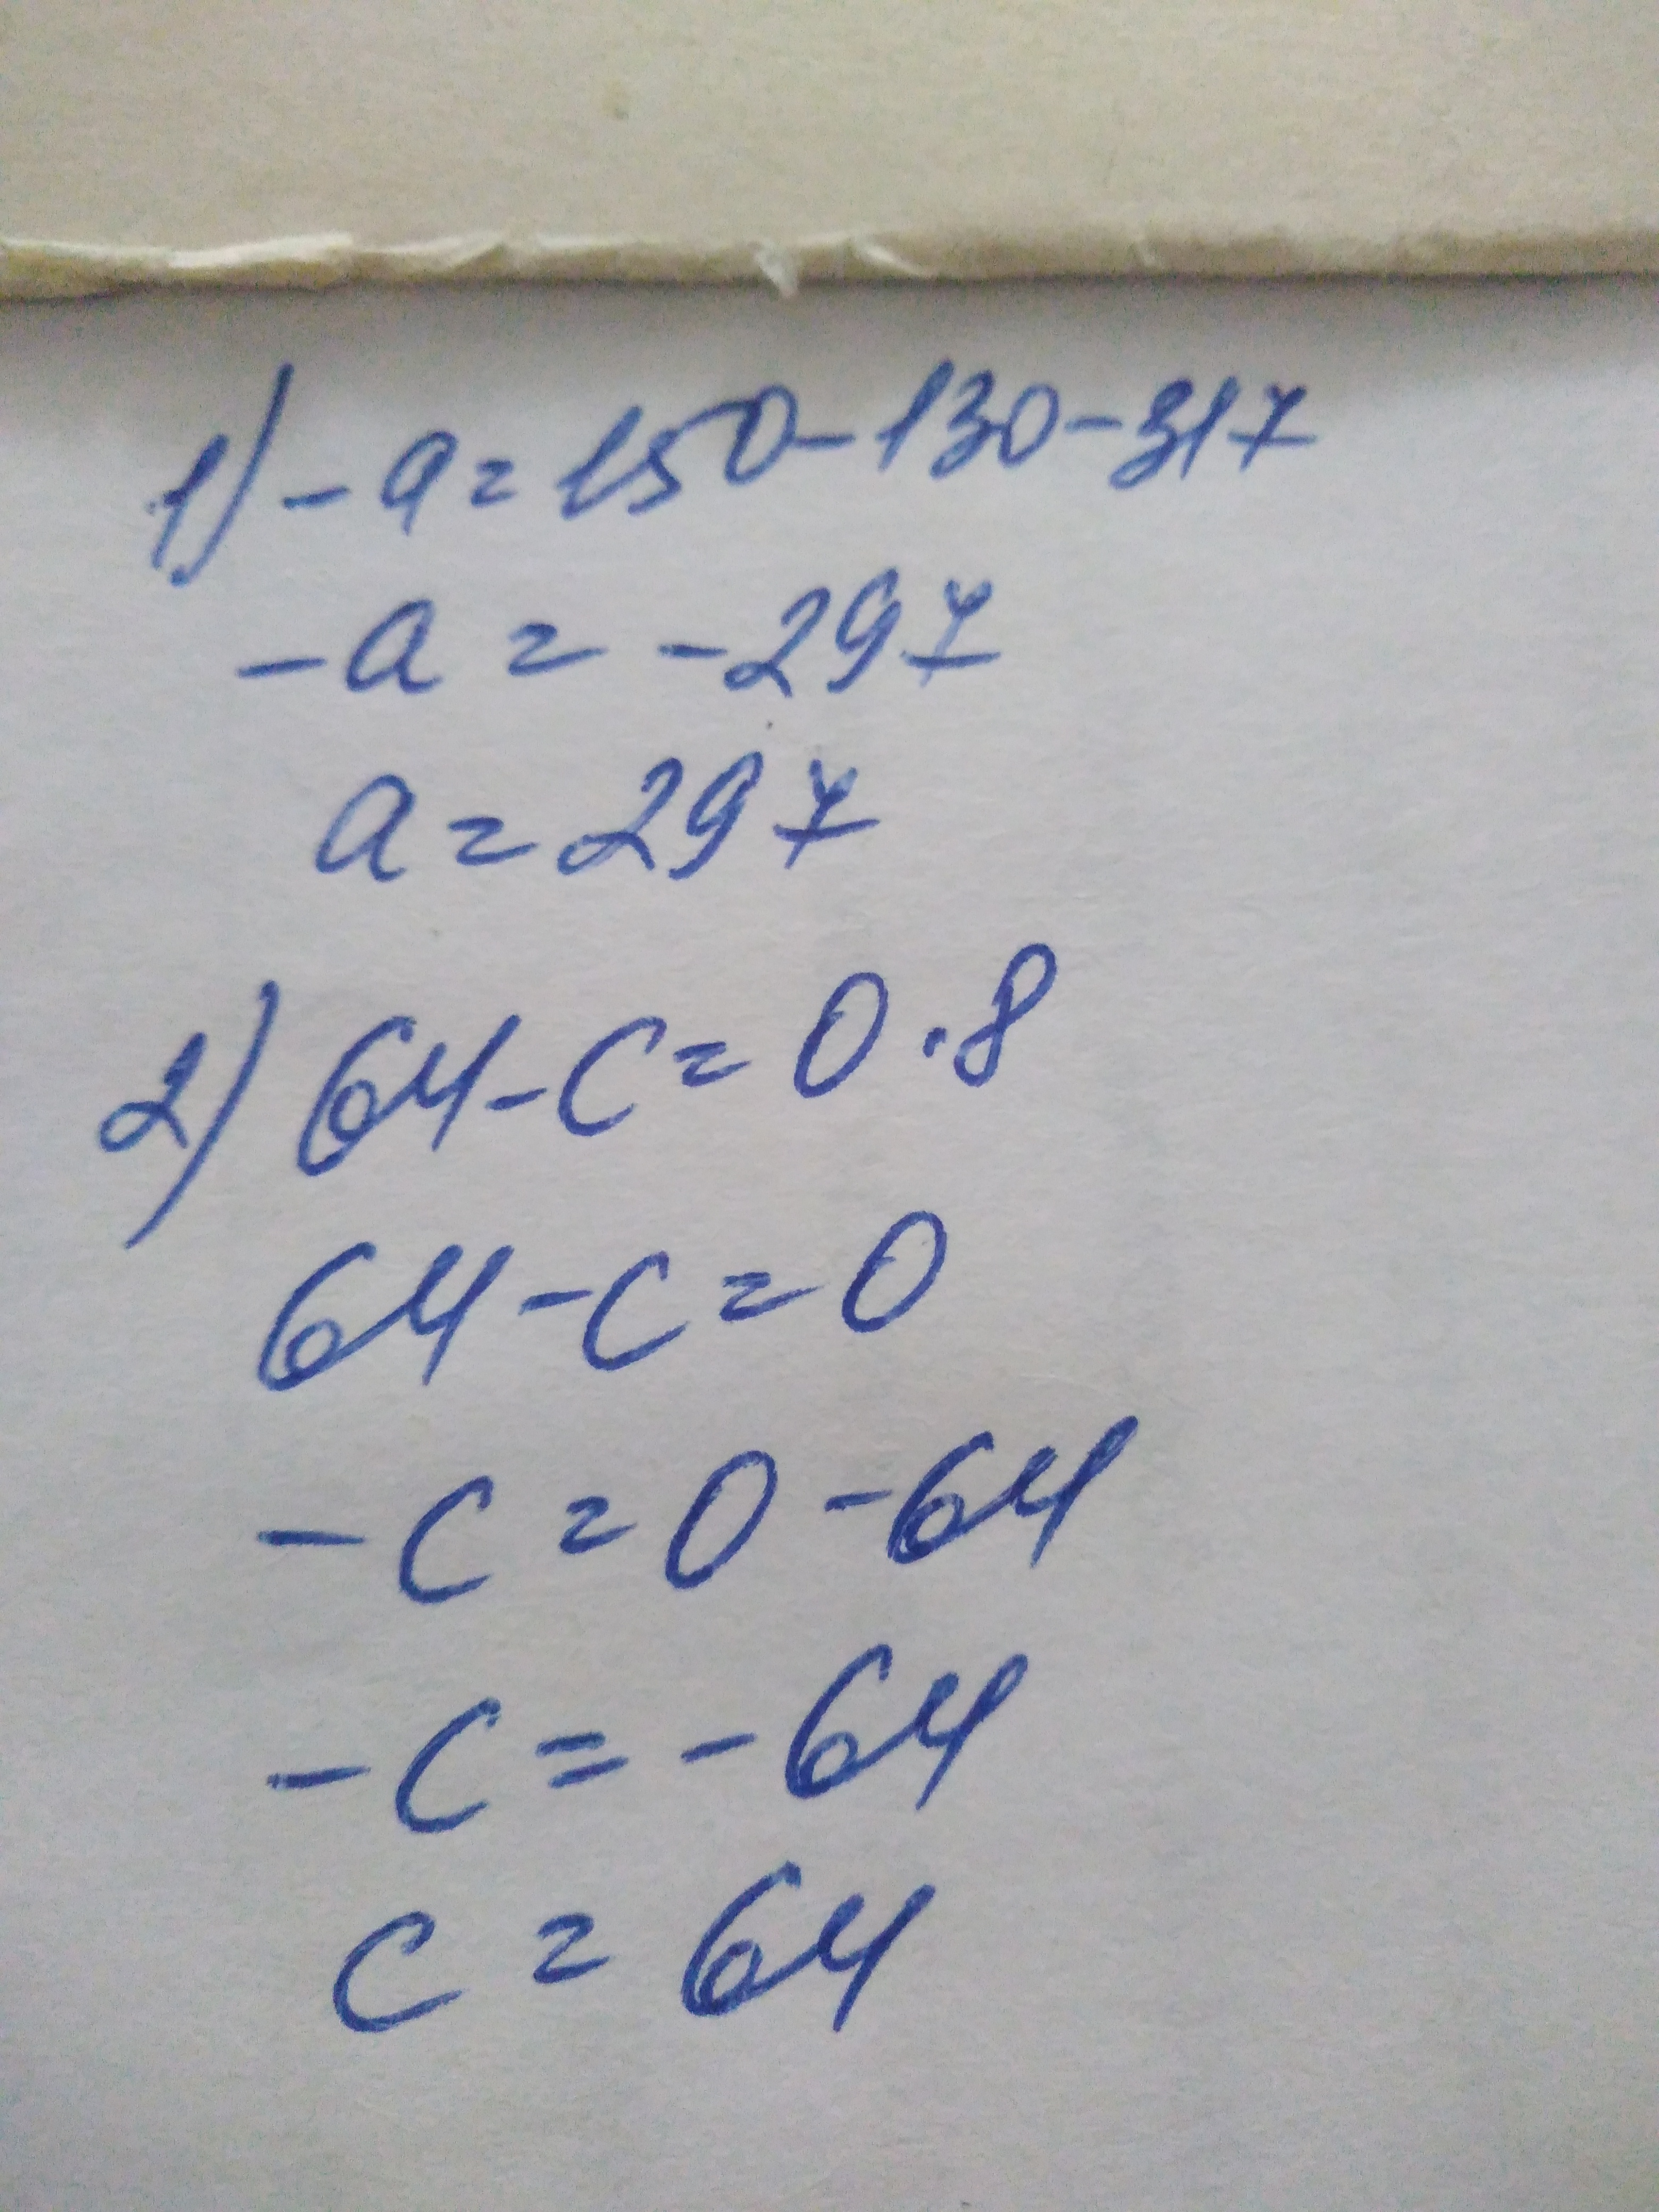 1) -a=150-130-317
-a = -297
a = 297
2) 64-c=0·8
64-c=0
-c=0-64
-c=-64
c=64